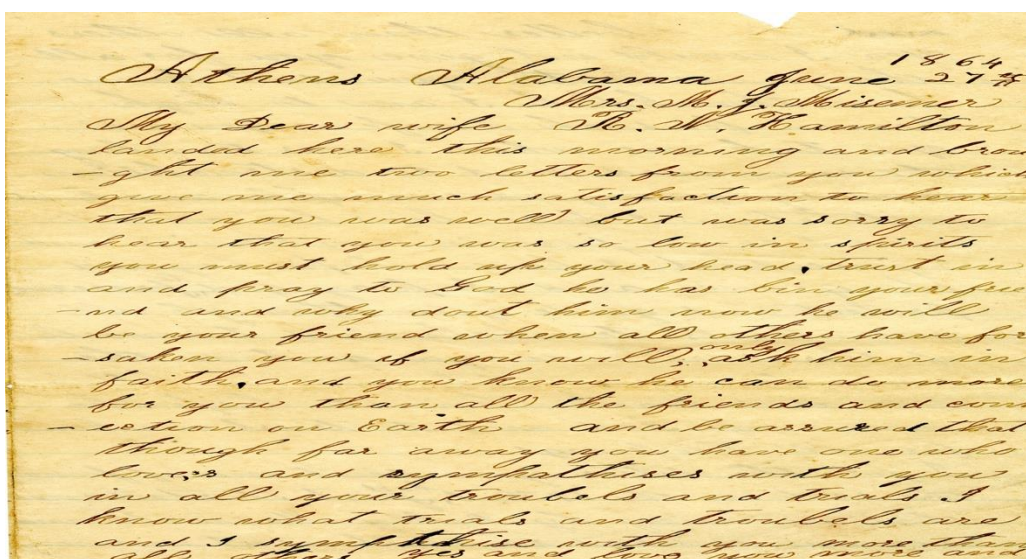 Athens Alabama June 27th 1864
Mrs. M. J. Misemer
My Dear wife R. N. Hamilton
landed here this morning and brou
-ght me two letters from you which
give me much satisfaction to hear
that you was well but was sorry to
hear that you was so low in spirits
you must hold up your head, trust in
and pray to God he has bin your frie
-nd and why dout him now he will
be your friend when all others have for
-saken you if you will, only ask him in
faith, and you know he can do more
for you than all the friends and conn
-ection on Earth and be assured that
though far away you have one who
loves and sympathises with you
in all your troubels and trials I
know what trials and troubels are
and I sympathise with you more than
all others yes and love you more